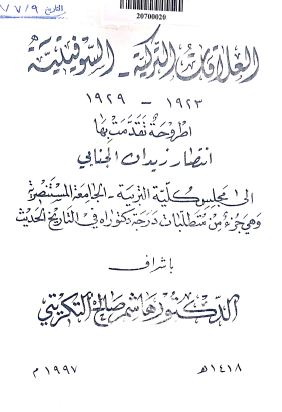 20700020
العلاقات التركية - السوفيتية
١٩٢٣ - ١٩٢٩
اطروحة تقدمت بها
انتصار زيدان الجنابي
الى مجلس كلية التربية - الجامعة المستنصرية
وهي جزء من متطلبات درجة دكتوراه في التاريخ الحديث
باشراف
الدكتور هاشم صالح التكريتي
١٤١٨هـ ١٩٩٧م